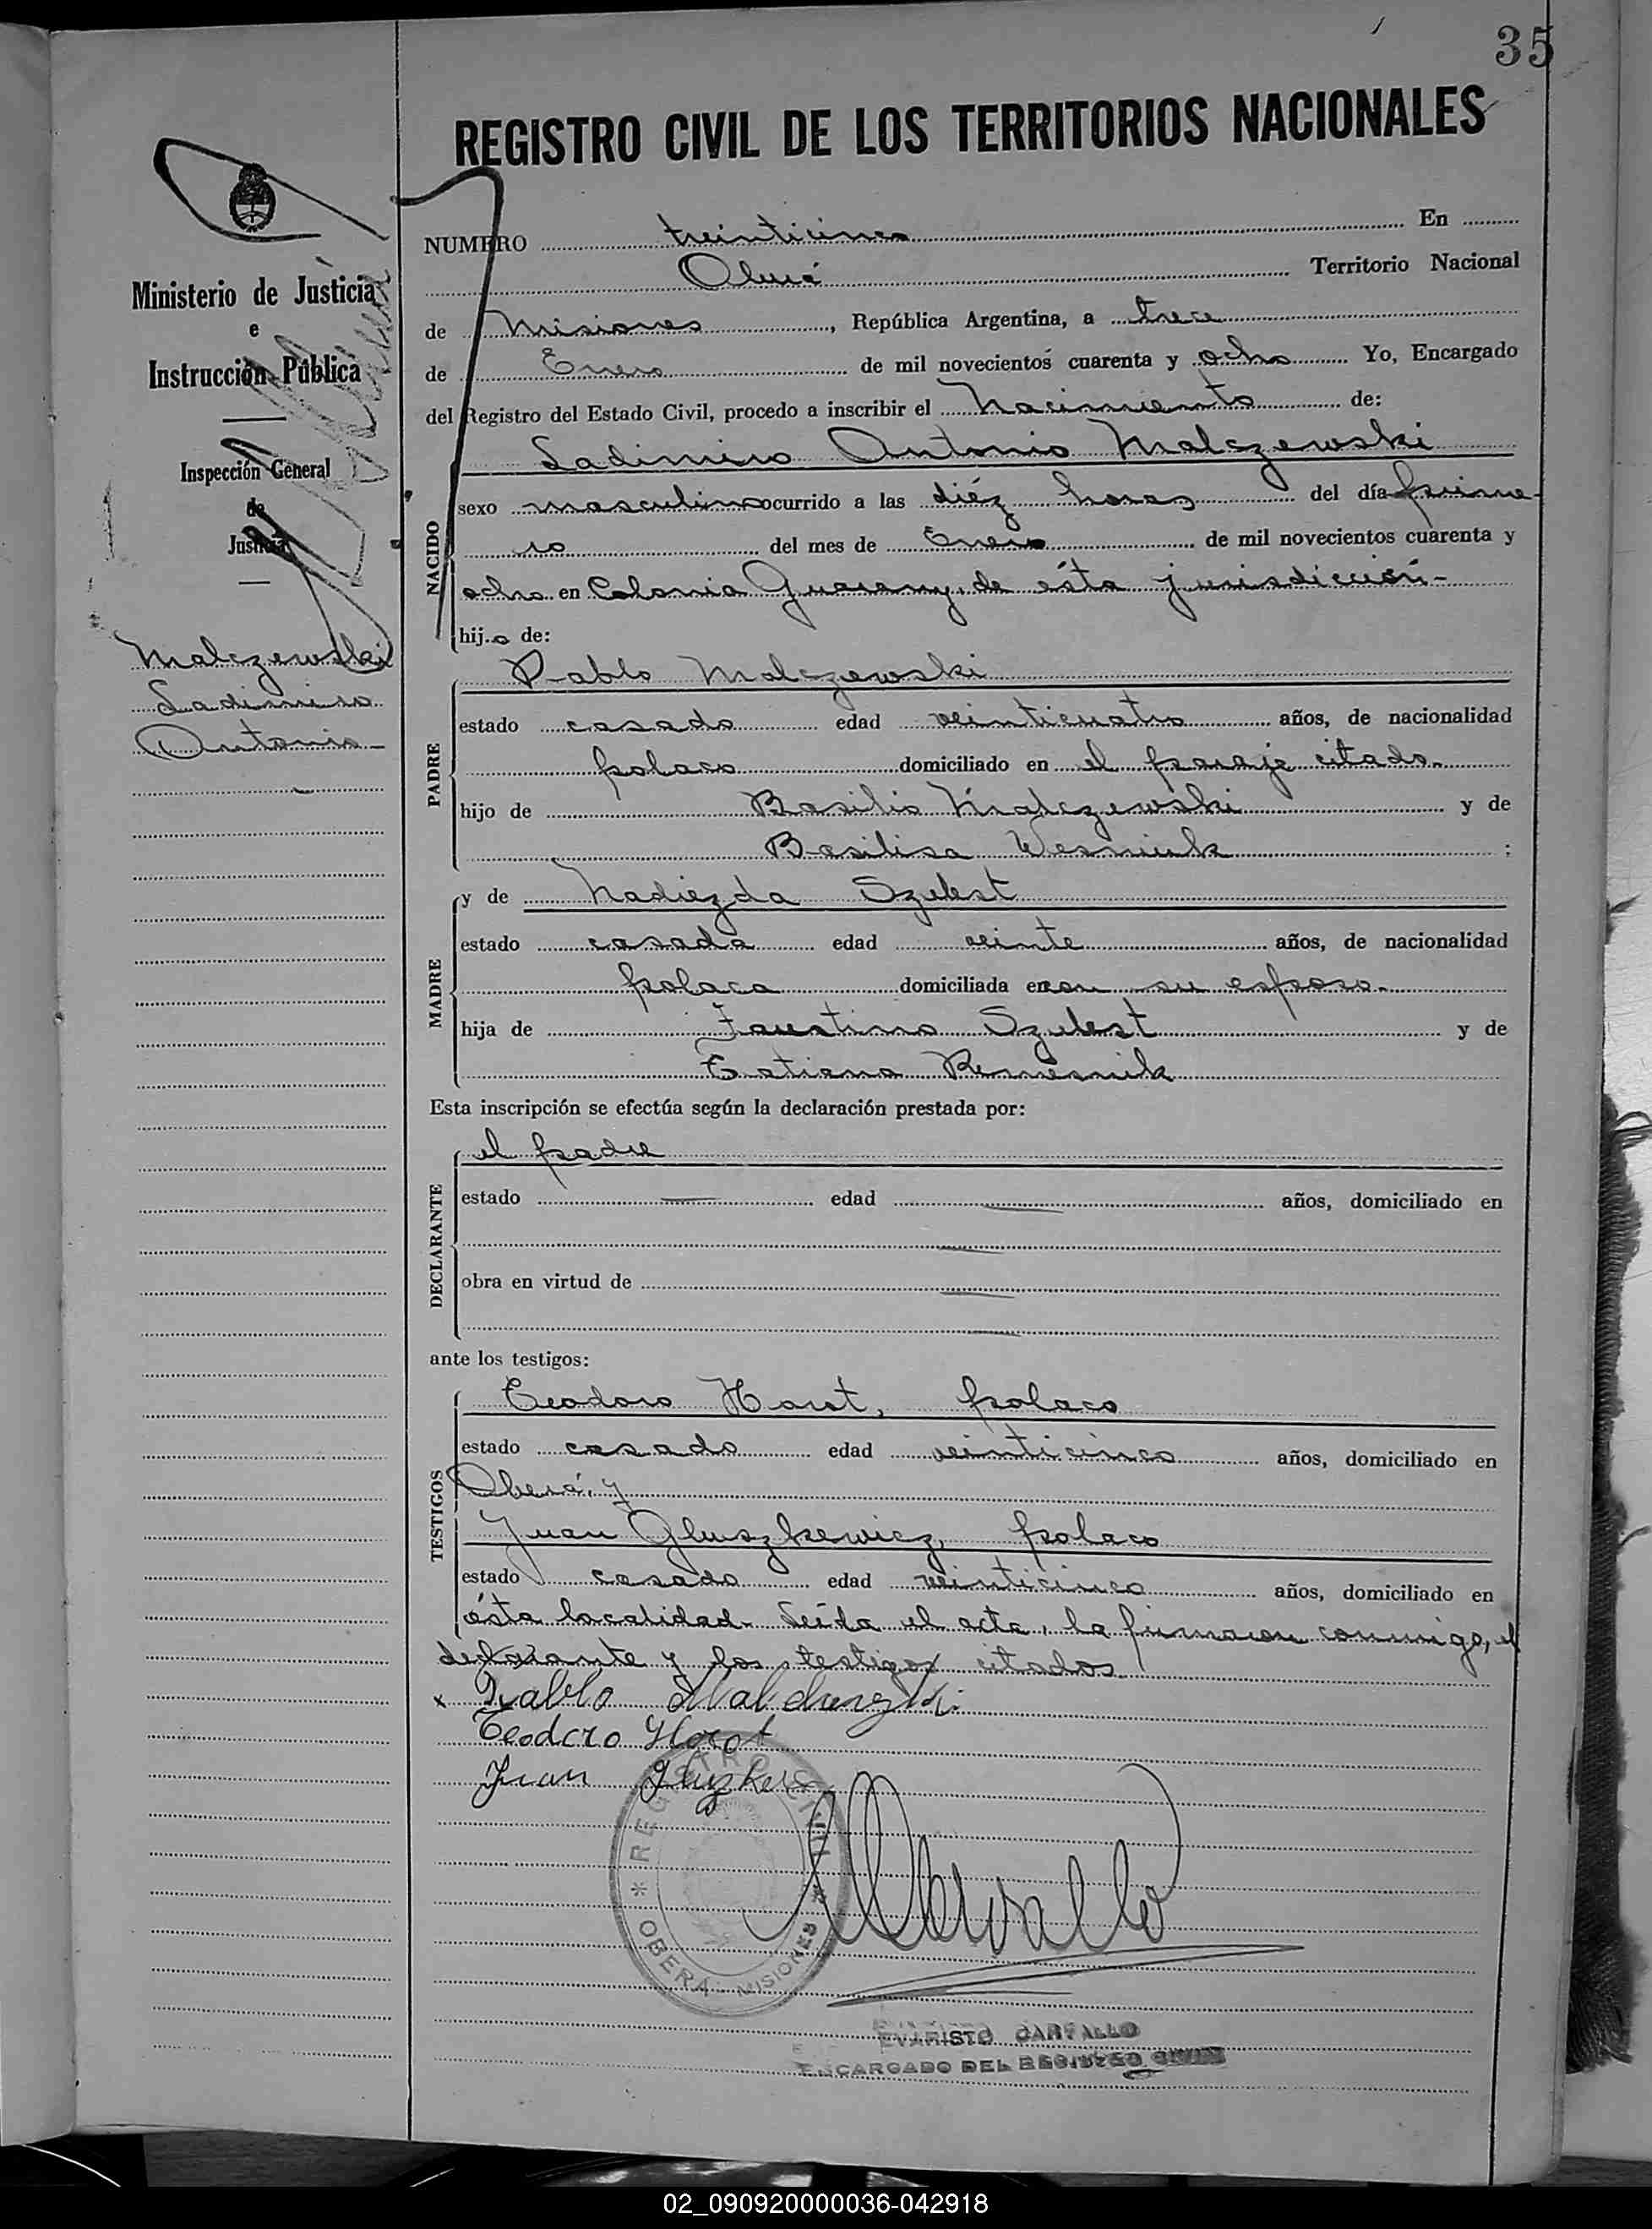 35
REGISTRO CIVIL DE LOS TERRITORIOS NACIONALES
Ministerio de Justicia
e
Instrucción Pública
Inspección General
de
Justicia
Malczewski
Ladimiro
Antonio
NUMERO treinticinco En
Oberá Territorio Nacional
de Misiones, República Argentina, a trece
de Enero de mil novecientos cuarenta y ocho Yo, Encargado
del Registro del Estado Civil, procedo a inscribir el Nacimiento de:
NACIDO
Ladimiro Antonio Malczewski
sexo masculino ocurrido a las diéz horas del día prime-
ro del mes de Enero de mil novecientos cuarenta y
ocho en Colonia Guarany, de ésta jurisdicción-
hijo de:
PADRE
Pablo Malczewski
estado casado edad veinticuatro años, de nacionalidad
polaco domiciliado en el paraje citado.
hijo de Basilio Malczewski y de
Basilisa Wesniuk ;
MADRE
y de Nadiezda Szulest
estado casada edad veinte años, de nacionalidad
polaca domiciliada en con su esposo.
hija de Faustino Szulest y de
Tatiana
Esta inscripción se efectúa según la declaración prestada por:
DECLARANTE
el padre
estado edad años, domiciliado en
obra en virtud de
ante los testigos:
TESTIGOS
Teodoro Horot, polaco
estado casado edad veinticinco años, domiciliado en
Oberá, y
Juan Gluszkewicz, polaco
estado casado edad veinticinco años, domiciliado en
ésta localidad. Leída el acta, la firmaron conmigo, el
declarante y los testigos citados
x Pablo
Teodoro Horot
Juan
REGISTRO CIVIL
* OBERÁ - MISIONES *
EVARISTO CARVALLO
ENCARGADO DEL REGISTRO CIVIL
02_090920000036-042918